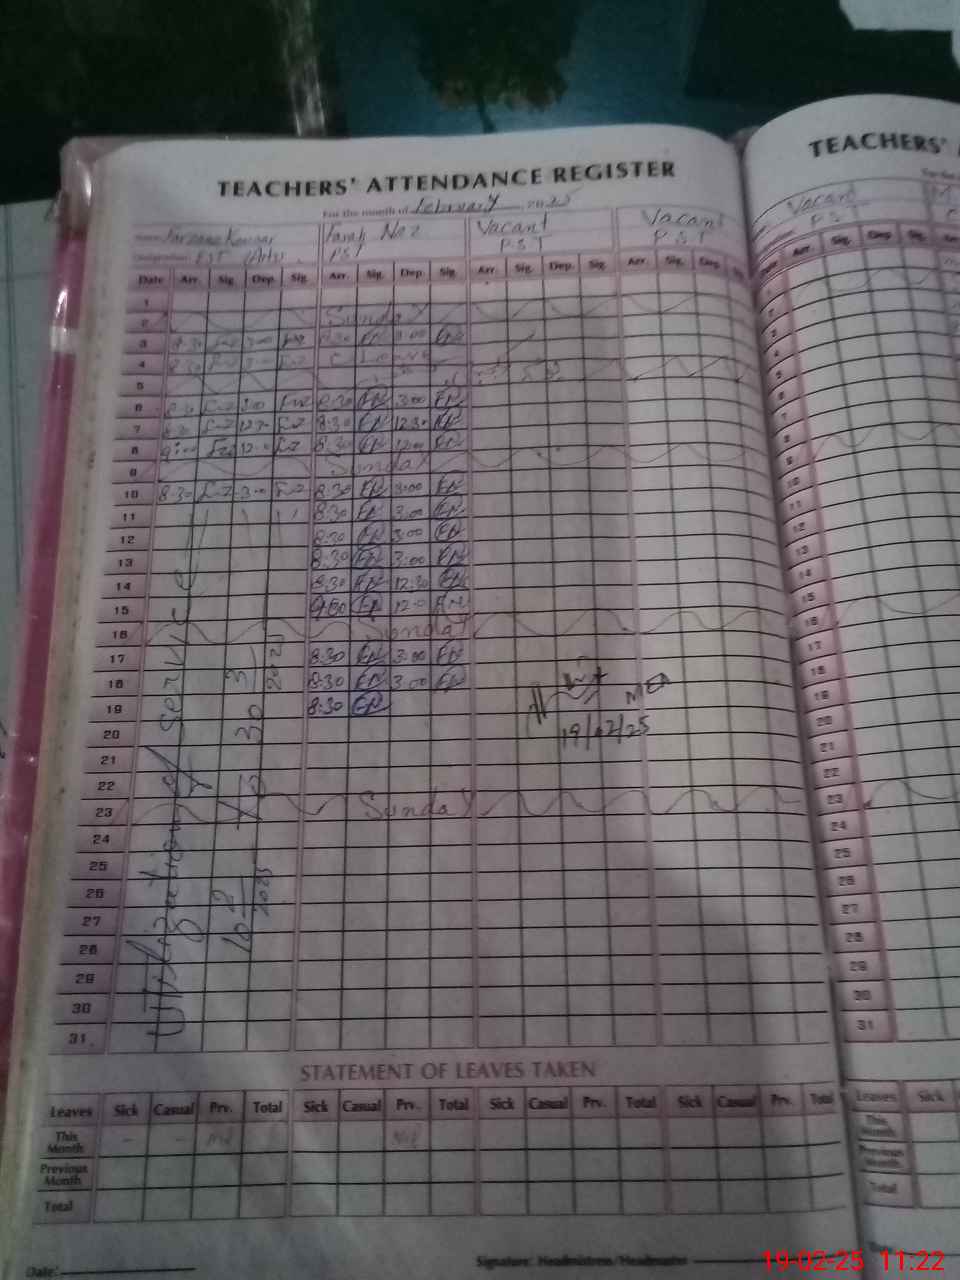 TEACHERS' ATTENDANCE REGISTER
For the month of February 2025
Name Farzana Kousar Farah Naz Vacant Vacant
Designation EST (Arts) PST P.S.T P.S.T
Date Arr. Sig. Dep. Sig. Arr. Sig. Dep. Sig. Arr. Sig. Dep. Sig. Arr. Sig. Dep. Sig.
1
2 Sunday
3 8:30 3:00 8:30 3:00
4 8:30 3:00 C Leave
5
6 8:30 3:00 8:30 3:00
7 8:30 12:30 8:30 12:30
8 9:00 12:00 8:30 12:00
9 Sunday
10 8:30 3:00 8:30 3:00
11 8:30 3:00
12 8:30 3:00
13 8:30 3:00
14 8:30 12:30
15 9:00 12:0
16 Sunday
17 8:30 3:00
18 8:30 3:00
19 8:30
MEA
19/02/25
20
21
22
23 Sunday
24
25
26
27
28
29
30
31
Utilization of service
10 2 2025 30 3 2025
STATEMENT OF LEAVES TAKEN
Leaves Sick Casual Prv. Total Sick Casual Prv. Total Sick Casual Prv. Total Sick Casual Prv. Total
This Month - - Nil Nil
Previous Month
Total
Date: Signature: Headmistress/Headmaster
TEACHERS'
Vacant
P.S.T
Date Arr. Sig. Dep. Sig.
1
2
3
4
5
6
7
8
9
10
11
12
13
14
15
16
17
18
19
20
21
22
23
24
25
26
27
28
29
30
31
Leaves Sick
This Month
Previous Month
Total
19-02-25 11:22